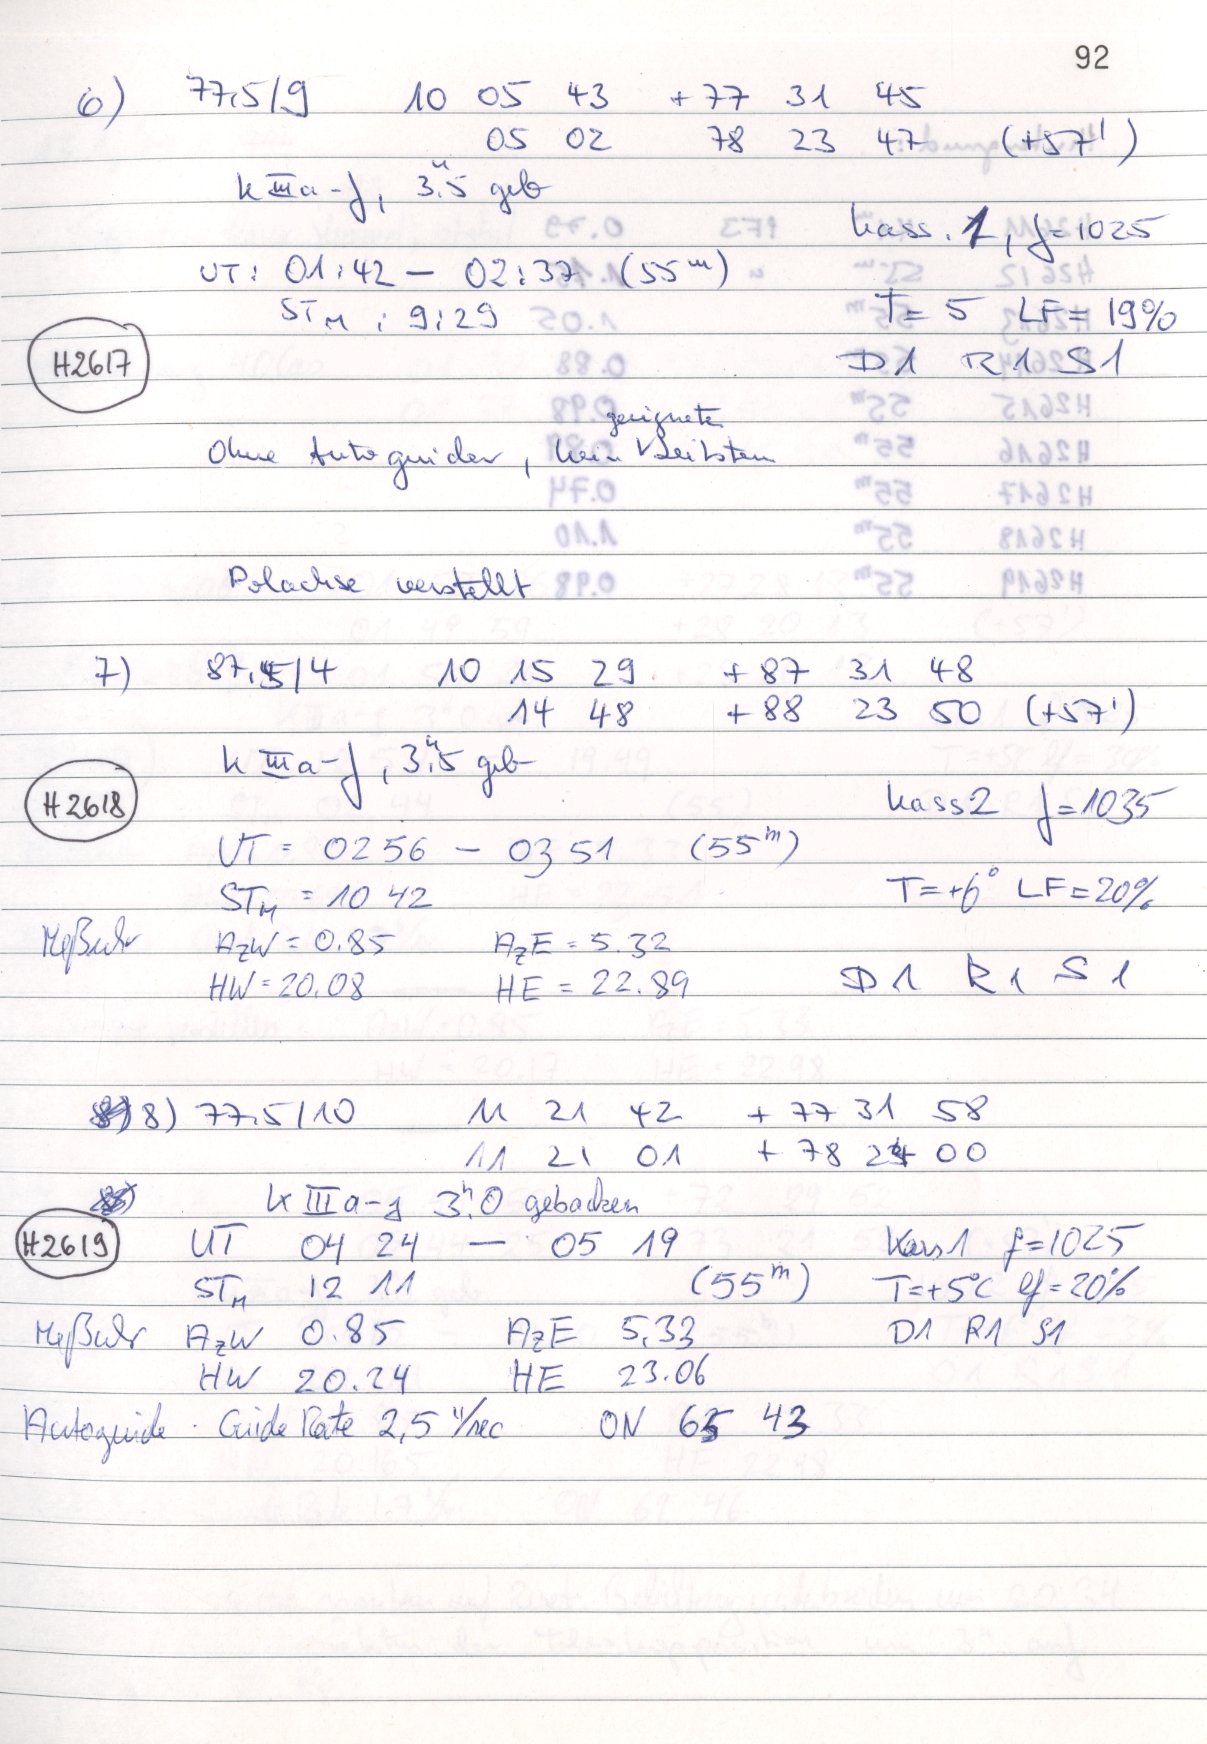 92
6) 77.5/9 10 05 43 +77 31 45
05 02 78 23 47 (+57')
k III a-J, 3.5 geb
Kass. 1, f=1025
UT: 01:42 – 02:37 (55m)
STM : 9:29
T= 5 LF= 19%
H2617
D1 R1 S1
geeigneter
Ohne Autoguider, kein Leitstern
Polachse verstellt
7) 87.5/4 10 15 29 +87 31 48
14 48 +88 23 50 (+57')
k III a-J, 3.5 geb
H2618
Kass2 f=1035
UT = 02 56 – 03 51 (55m)
T=+6° LF=20%
STM = 10 42
Meßuhr AzW = 0.85 AzE = 5.32
HW = 20.08 HE = 22.89
D1 R1 S1
8) 77.5/10 11 21 42 +77 31 58
11 21 01 +78 24 00
k III a-J 3h.0 gebacken
H2619
UT 04 24 — 05 19 Kass1 f=1025
STM 12 11 (55m) T=+5°C lf=20%
Meßuhr AzW 0.85 AzE 5.33 D1 R1 S1
HW 20.24 HE 23.06
Autoguide. Guide Rate 2,5"/sec ON 65 43